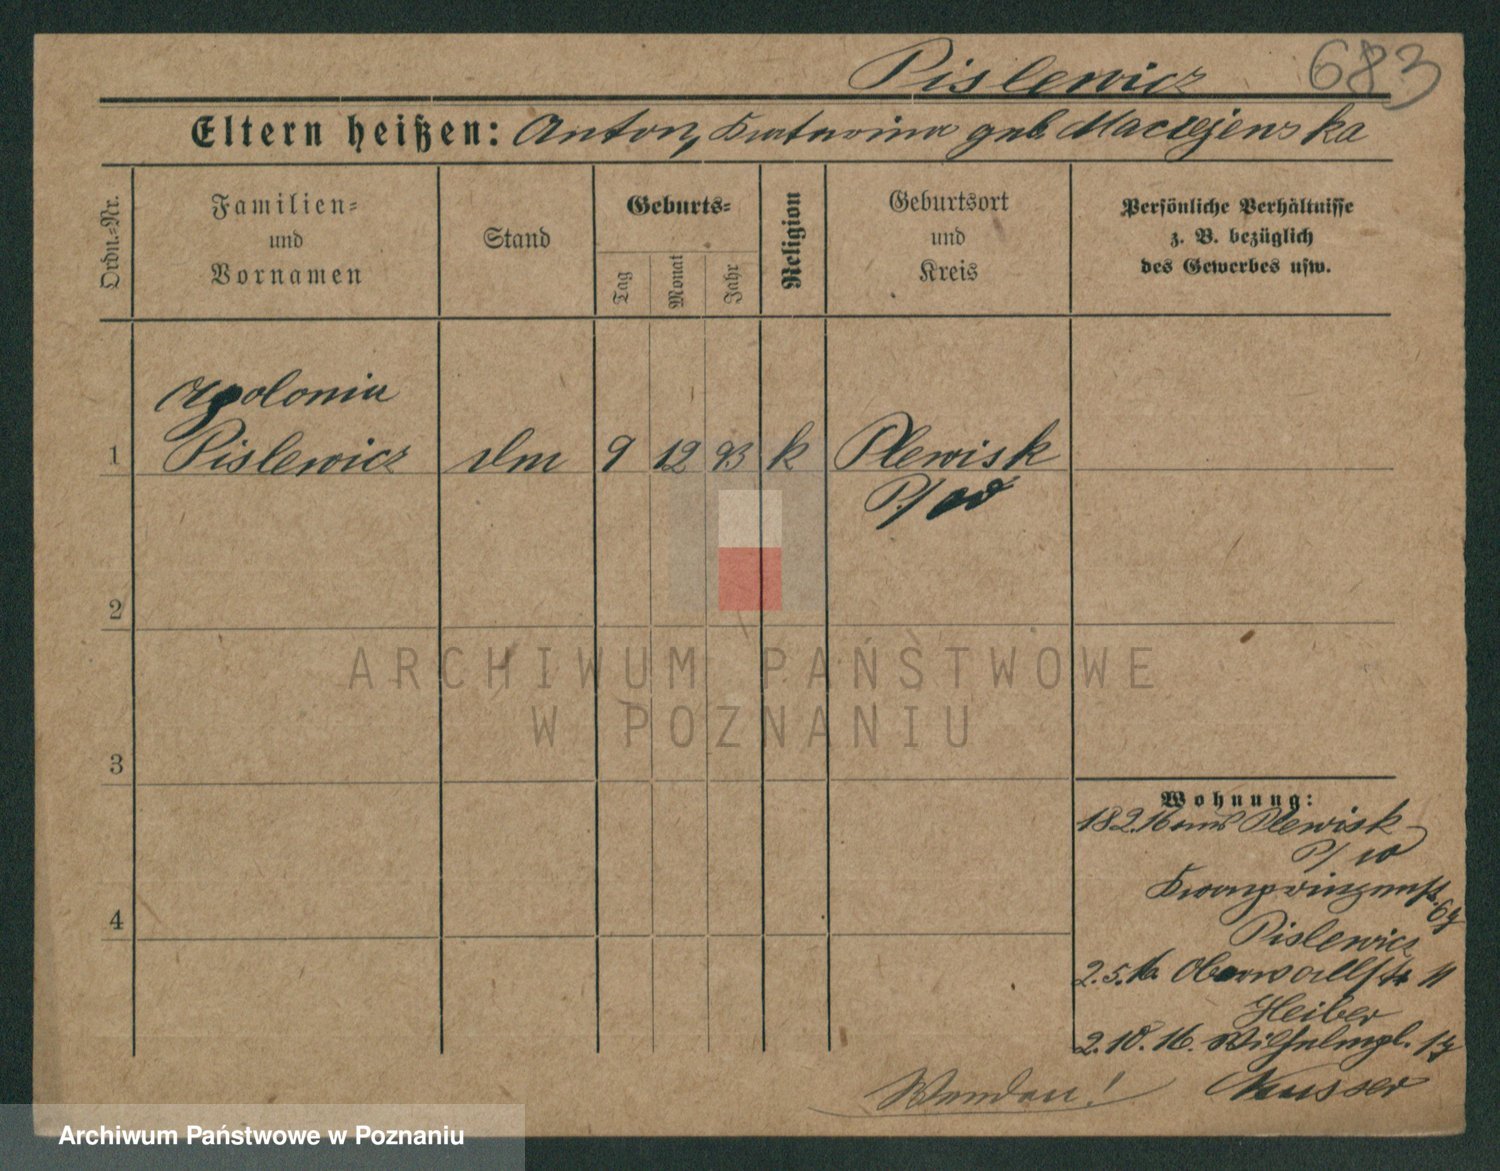 Pislewicz 683
Eltern heißen: Anton, Katarina geb. Maciejewska
Ordn.=Nr.
Familien=
und
Vornamen
Stand
Geburts=
Tag
Monat
Jahr
Religion
Geburtsort
und
Kreis
Persönliche Verhältnisse
z. B. bezüglich
des Gewerbes usw.
Apolonia
1 Pislewicz 9 12 93 k Plewisk
P/W
2
3
4
Wohnung:
18 2. 16 aus Plewisk
P/W
Kronprinzenst.
Pislewicz
2. 5. 16. Oberwallstr 11
Heiber
2. 10. 16. Wilhelmpl. 17
Wenden!
ARCHIWUM PAŃSTWOWE
W POZNANIU
Archiwum Państwowe w Poznaniu